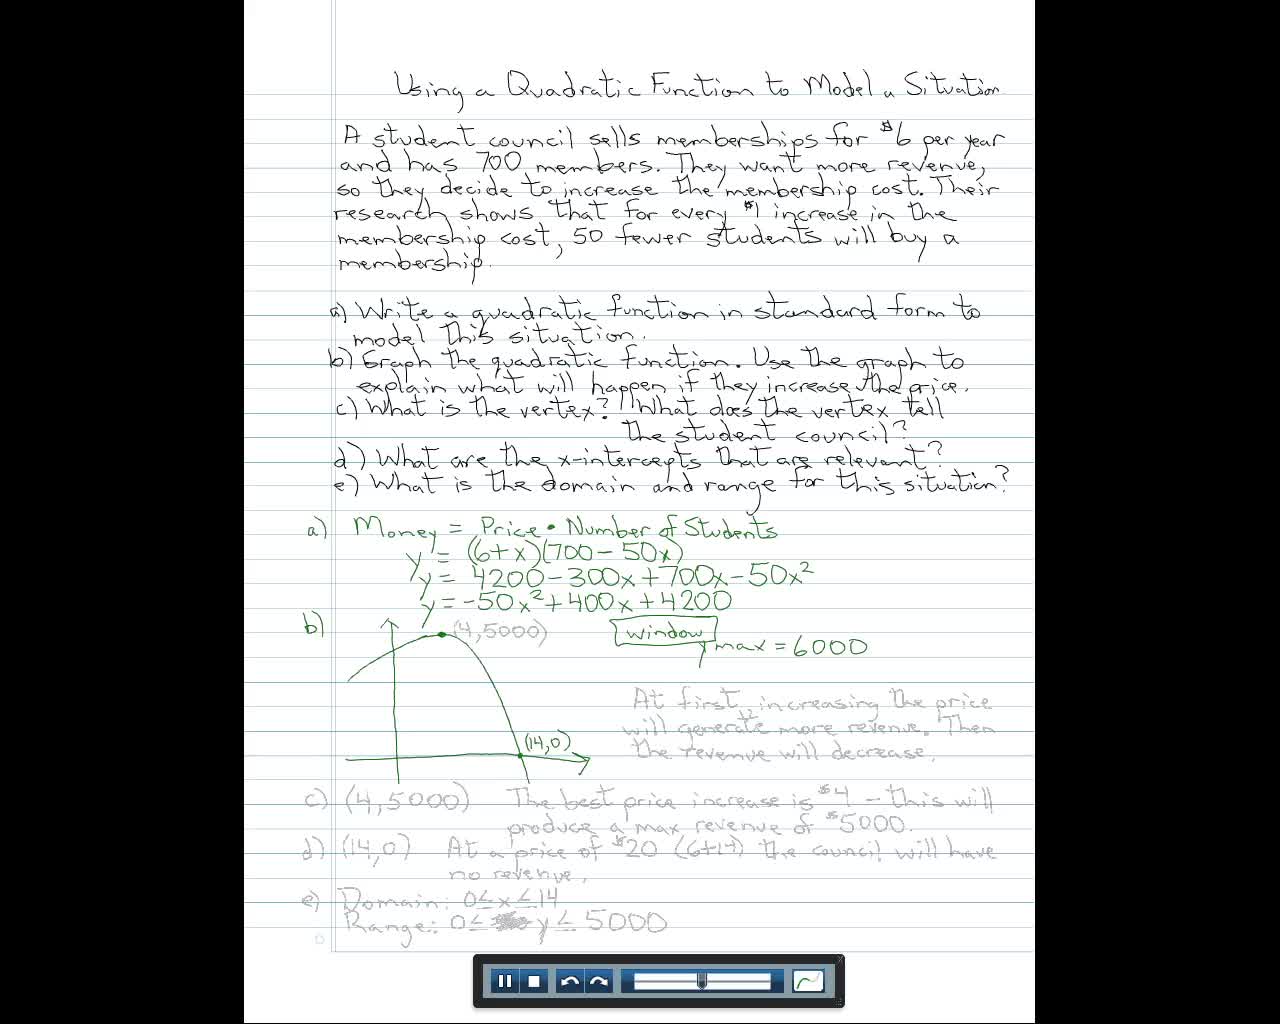 Using a Quadratic Function to Model a Situation
A student council sells memberships for $6 per year
and has 700 members. They want more revenue,
so they decide to increase the membership cost. Their
research shows that for every $1 increase in the
membership cost, 50 fewer students will buy a
membership.
a) Write a quadratic function in standard form to
model this situation.
b) Graph the quadratic function. Use the graph to
explain what will happen if they increase the price.
c) What is the vertex? What does the vertex tell
the student council?
d) What are the x-intercepts that are relevant?
e) What is the domain and range for this situation?
a) Money = Price • Number of Students
y = (6+x)(700-50x)
y = 4200-300x+700x-50x²
y = -50x²+400x+4200
b)
(4,5000)
window
ymax = 6000
At first, increasing the price
will generate more revenue. Then
the revenue will decrease.
(14,0)
c) (4,5000) The best price increase is $4 - this will
produce a max revenue of $5000.
d) (14,0) At a price of $20 (6+14) the council will have
no revenue.
e) Domain: 0≤x≤14
Range: 0≤ y ≤ 5000